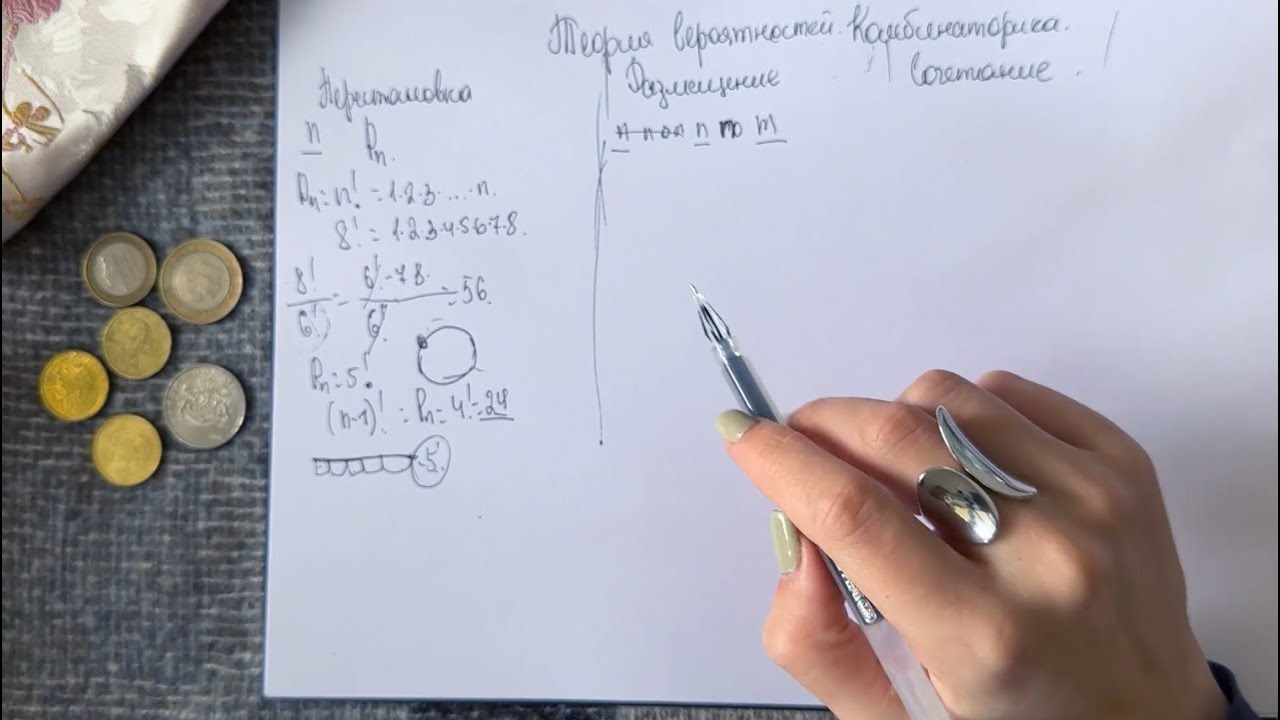 Теория вероятностей. Комбинаторика.
Перестановка
n Pn.
Pn = n! = 1·2·3·...·n.
8! = 1·2·3·4·5·6·7·8.
8!/6! = 6!·7·8/6! = 56.
Pn = 5!
(n-1)! = Pn = 4! = 24
5!
Размещение
n по m
Сочетание.